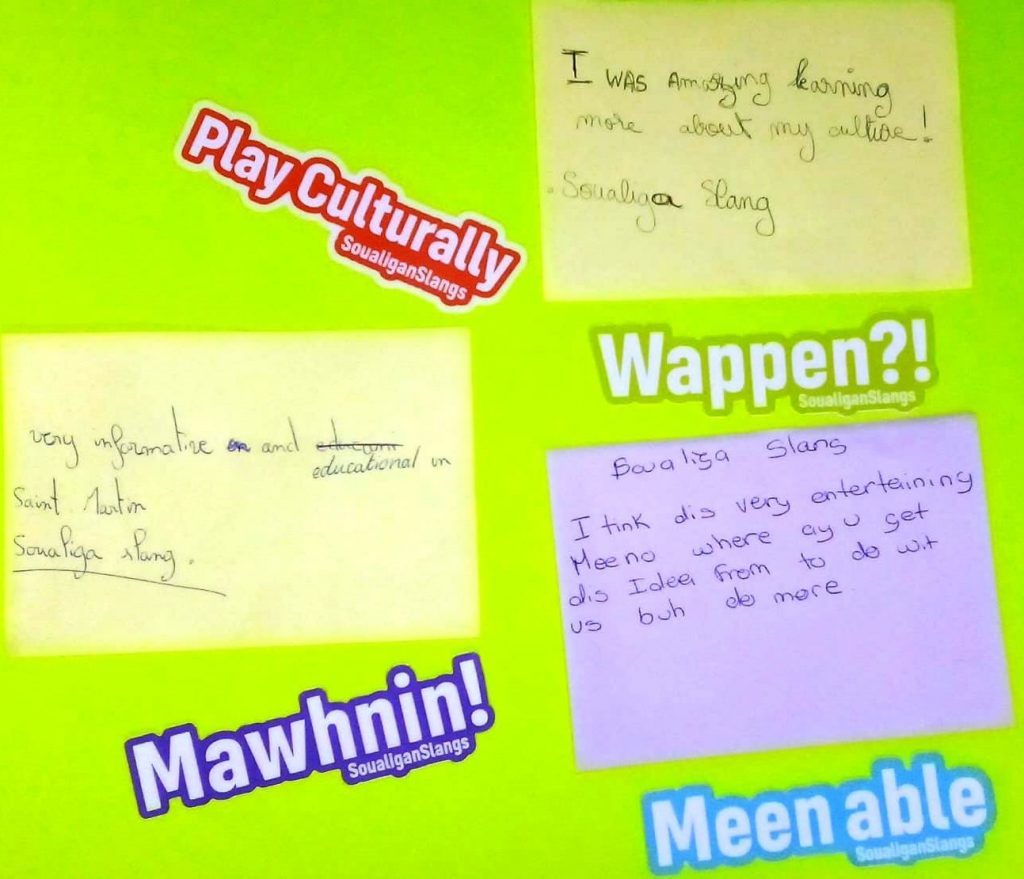 I WAS Amazing learning
more about my culture!
Soualiga Slang
Play Culturally
SoualiganSlangs
Wappen?!
SoualiganSlangs
very informative and
educational in
Saint Martin
Soualiga slang.
Soualiga Slang
I tink dis very entertaining
Meeno where ay u get
dis Ideea from to do wit
us buh do more
Mawhnin!
SoualiganSlangs
Meen able
SoualiganSlangs